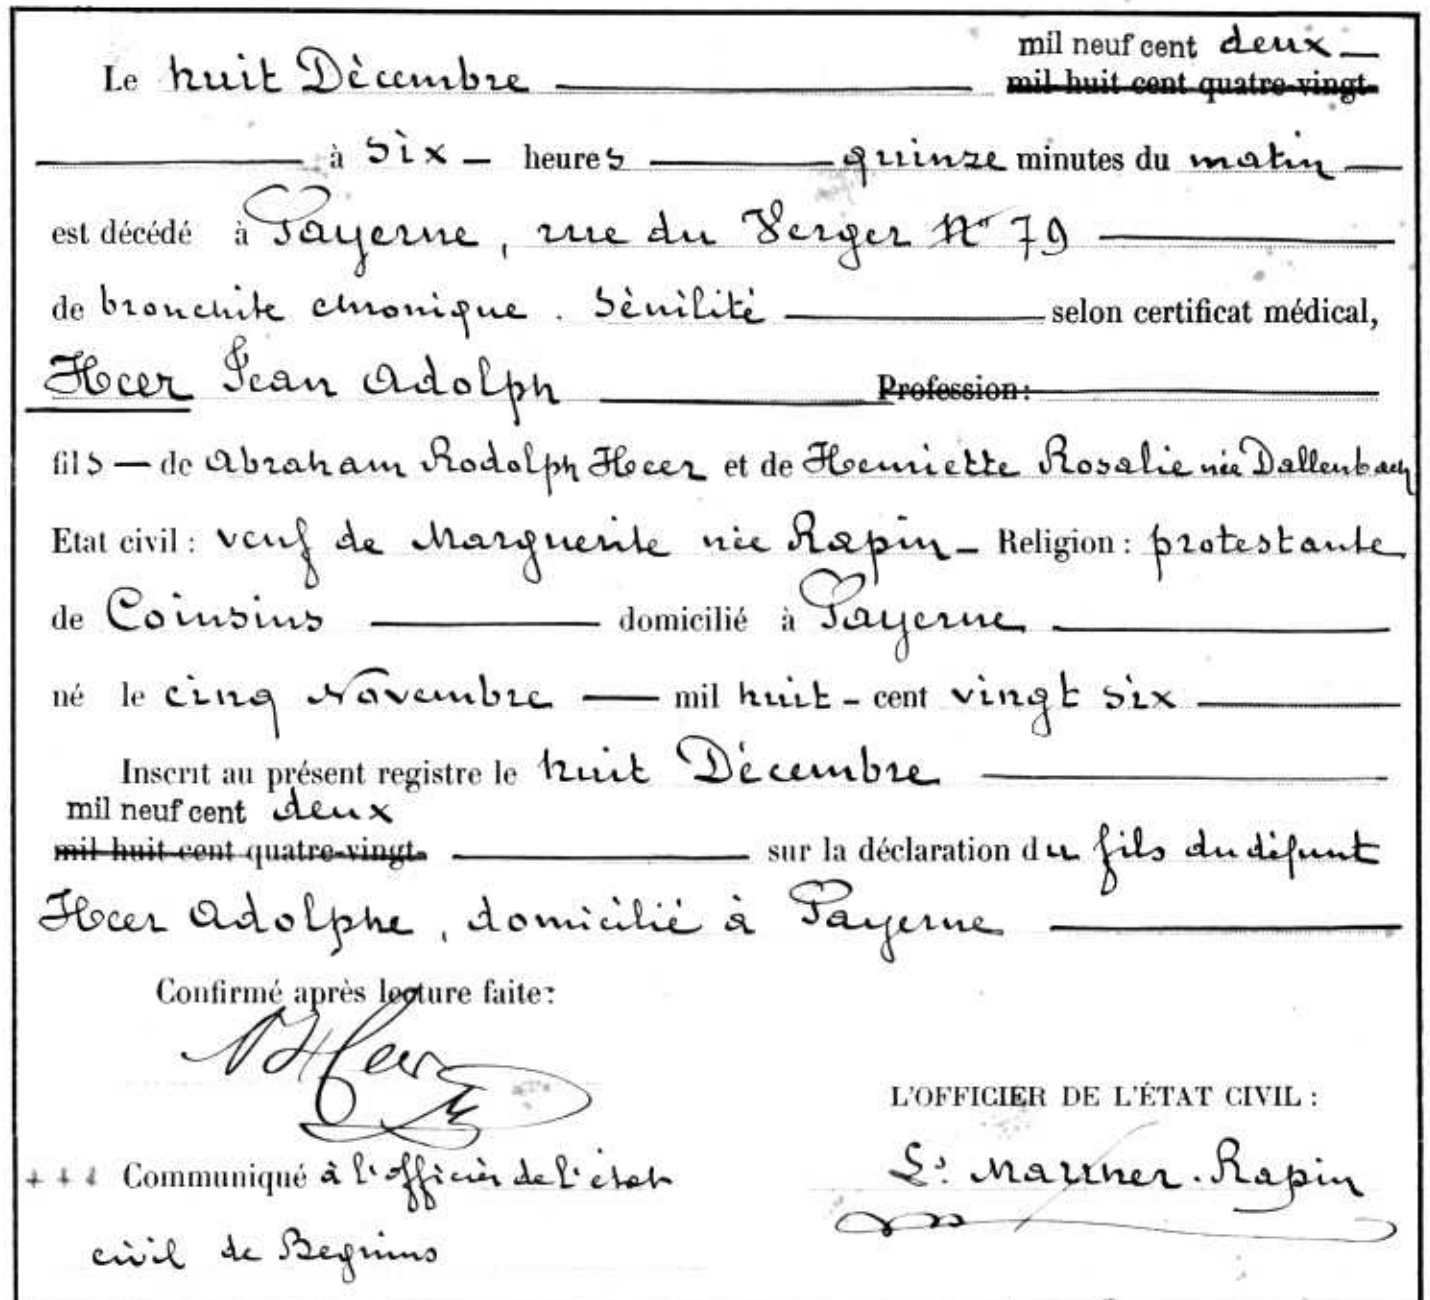 mil neuf cent deux
Le huit Décembre mil huit cent quatre-vingt-
à six heures quinze minutes du matin
est décédé à Payerne, rue du Verger No 79
de bronchite chronique. Sénilité selon certificat médical,
Heer Jean Adolph Profession:
fils de Abraham Rodolph Heer et de Henriette Rosalie née Dallenbach
Etat civil : veuf de Marguerite née Rapin Religion : protestante
de Coinsins domicilié à Payerne
né le cinq Novembre mil huit-cent vingt six
Inscrit au présent registre le huit Décembre
mil neuf cent deux
mil huit cent quatre-vingt- sur la déclaration du fils du défunt
Heer Adolphe, domicilié à Payerne
Confirmé après lecture faite:
Heer
L'OFFICIER DE L'ÉTAT CIVIL :
Communiqué à l'officier de l'état
Rapin
civil de Begnins